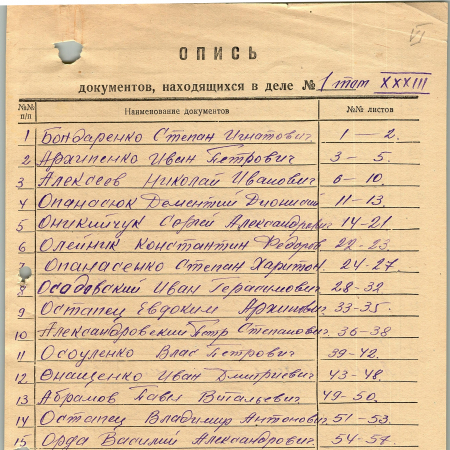 VI
ОПИСЬ
документов, находящихся в деле № 1 том XXXIII
№№ п/п Наименование документов №№ листов
1 Бондаренко Степан Игнатович 1 — 2.
2 Архипенко Иван Петрович 3 — 5.
3 Алексеев Николай Иванович 6 — 10.
4 Опанасюк Дементий Дионисий 11 — 13.
5 Оникийчук Сергей Александрович 14-21.
6 Олейник Константин Федоров 22-23
7 Опанасенко Степан Харитон. 24-27.
8 Осадовский Иван Герасимович 28-32
9 Остапец Евдоким Архипович 33-35.
10 Александровский Петр Степанович 36-38
11 Осоуленко Влас Петрович 39-42.
12 Онищенко Иван Дмитриевич 43-48.
13 Абрамов Павел Витальевич 49-50.
14 Остапец Владимир Антонович 51-53.
15 Орда Василий Александрович 54-57.